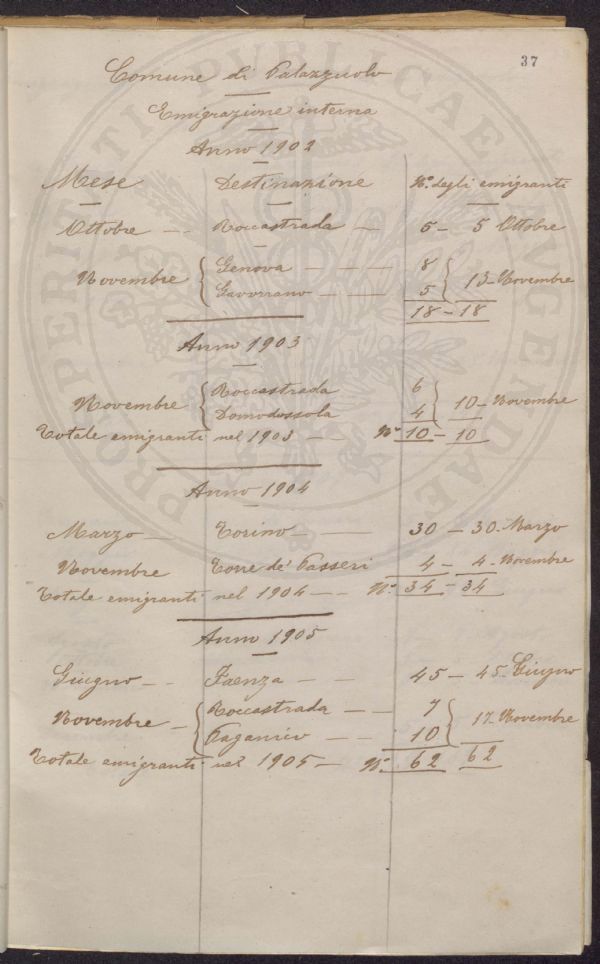 37
Comune di Palazzuolo
Emigrazione interna
Anno 1902
Mese Destinazione N.º degli emigranti
Ottobre — Roccastrada — 5 — 5 Ottobre
Novembre { Genova — — — 8 } 13 - Novembre
Gavorrano — — 5
18 — 18
Anno 1903
Novembre { Roccastrada 6 } 10 - Novembre
Domodossola 4
Totale emigranti nel 1903 — — Nº 10 — 10
Anno 1904
Marzo — Torino — — 30 — 30 - Marzo
Novembre Torre de' Passeri 4 — 4 - Novembre
Totale emigranti nel 1904 — — Nº 34 — 34
Anno 1905
Giugno — — Faenza — — 45 — 45 - Giugno
Novembre — { Roccastrada — — 7 } 17. Novembre
Paganico — — 10
Totale emigranti nel 1905 — Nº 62 62
PRO PERITI PUBLICAE AUGENDAE